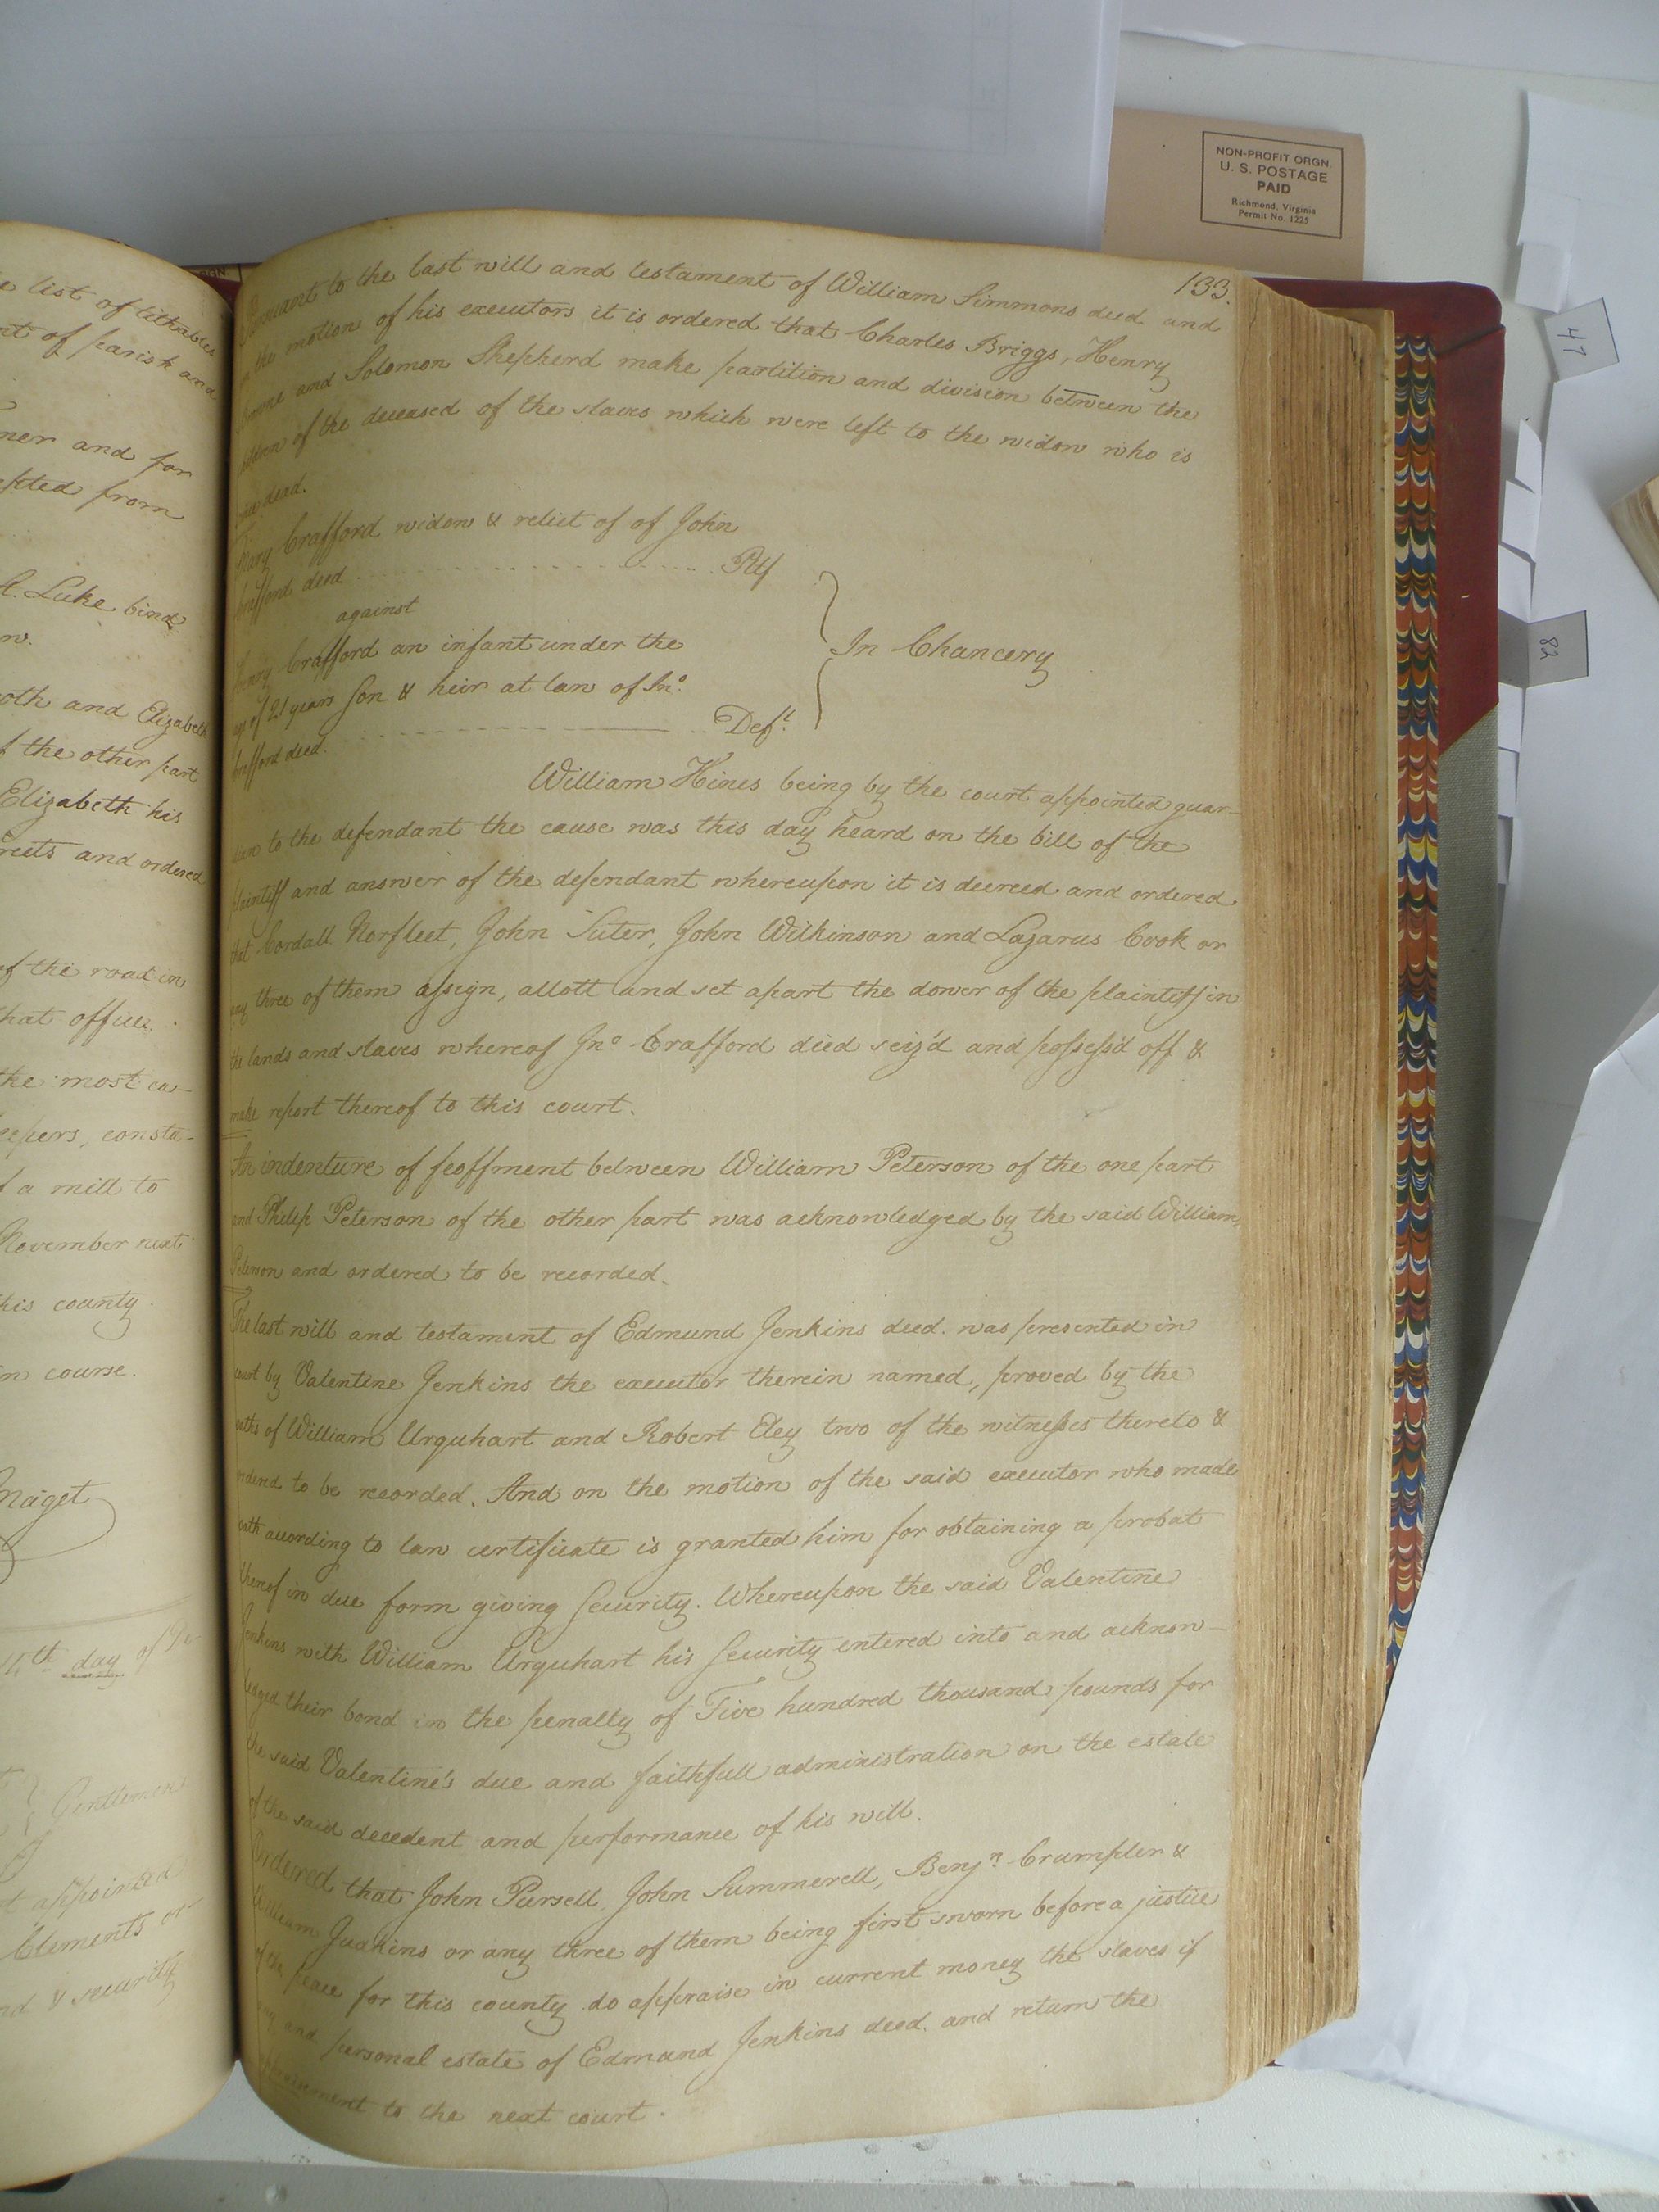 NON-PROFIT ORGN.
U. S. POSTAGE
PAID
Richmond, Virginia
Permit No. 1225
47
82
133.
list of tithables
of parish and
ner and for
from
Luke bind
oth and Elizabeth
f the other part
Elizabeth his
and ordered
of the road in
that office
the most
eepers, consta-
f a mill to
November next
this county.
in course.
Maget
th day of
Gentlemen
appointed
Clements or
nd & security
Pursuant to the last will and testament of William Simmons deced and
on the motion of his executors it is ordered that Charles Briggs, Henry
and Solomon Shepherd make partition and division between the
children of the deceased of the slaves which were left to the widow who is
dead.
Mary Crafford widow & relict of of John
Crafford deced Pltf
against
Henry Crafford an infant under the
age of 21 years son & heir at law of Jno.
Crafford deced. Deft.
In Chancery
William Hines being by the court appointed guar-
dian to the defendant the cause was this day heard on the bill of the
plaintiff and answer of the defendant whereupon it is decreed and ordered
that Cordall Norfleet, John Suter, John Wilkinson and Lazarus Cook or
any three of them assign, allott and set apart the dower of the plaintiff in
the lands and slaves whereof Jno. Crafford died seiz'd and possess'd off &
make report thereof to this court.
An indenture of feoffment between William Peterson of the one part
and Philip Peterson of the other part was acknowledged by the said William
Peterson and ordered to be recorded.
The last will and testament of Edmund Jenkins deced. was presented in
court by Valentine Jenkins the executor therein named, proved by the
oaths of William Urquhart and Robert Eley two of the witnesses thereto &
ordered to be recorded. And on the motion of the said executor who made
oath according to law certificate is granted him for obtaining a probat
thereof in due form giving security. Whereupon the said Valentine
Jenkins with William Urquhart his security entered into and acknow-
ledged their bond in the penalty of Five hundred thousand pounds for
the said Valentine's due and faithfull administration on the estate
of the said decedent and performance of his will.
Ordered that John Pursell, John Summerell, Benjn. Crumpler &
William Juakins or any three of them being first sworn before a justice
of the peace for this county do appraise in current money the slaves if
any and personal estate of Edmund Jenkins deced. and return the
appraisement to the next court.